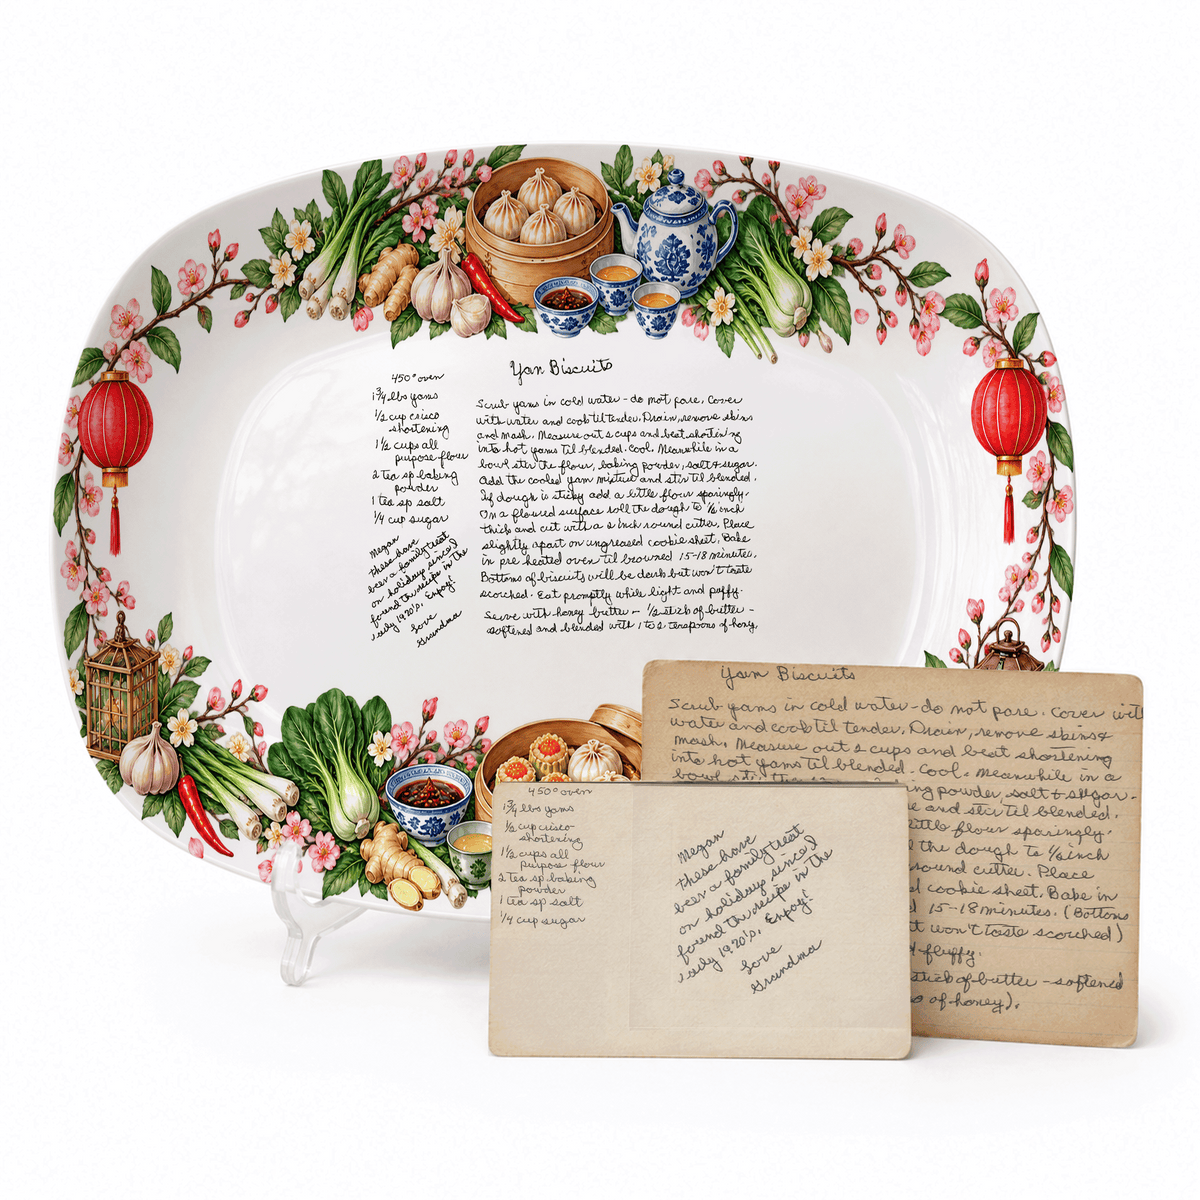 Yam Biscuits
450° oven
1 3/4 lbs yams
1/2 cup crisco
shortening
1 1/2 cups all
purpose flour
2 tea sp baking
powder
1 tea sp salt
1/4 cup sugar
Megan
these have
been a family treat
on holidays since I
found the recipe in the
early 1920's. Enjoy!
Love
Grandma
Scrub yams in cold water - do not pare. Cover
with water and cook til tender. Drain, remove skins
and mash. Measure out 2 cups and beat shortening
into hot yams til blended. Cool. Meanwhile in a
bowl stir the flour, baking powder, salt & sugar.
Add the cooled yam mixture and stir til blended.
If dough is sticky add a little flour sparingly.
On a floured surface roll the dough to 1/2 inch
thick and cut with a 2 inch round cutter. Place
slightly apart on ungreased cookie sheet. Bake
in pre heated oven til browned 15-18 minutes.
Bottoms of biscuits will be dark but won't taste
scorched. Eat promptly while light and puffy.
Serve with honey butter - 1/2 stick of butter -
softened and blended with 1 to 2 teaspoons of honey.
Yam Biscuits
Scrub yams in cold water - do not pare. Cover with
water and cook til tender. Drain, remove skins &
mash. Measure out 2 cups and beat shortening
into hot yams til blended. Cool. Meanwhile in a
bowl stir the
ng powder, salt & sugar.
e and stir til blended.
little flour sparingly.
l the dough to 1/2 inch
round cutter. Place
d cookie sheet. Bake in
15-18 minutes. (Bottoms
t won't taste scorched)
& fluffy.
stick of butter - softened
of honey).
450° oven
1 3/4 lbs yams
1/2 cup crisco
shortening
1 1/2 cups all
purpose flour
2 tea sp baking
powder
1 tea sp salt
1/4 cup sugar
Megan
these have
been a family treat
on holidays since I
found the recipe in the
early 1920's. Enjoy!
Love
Grandma